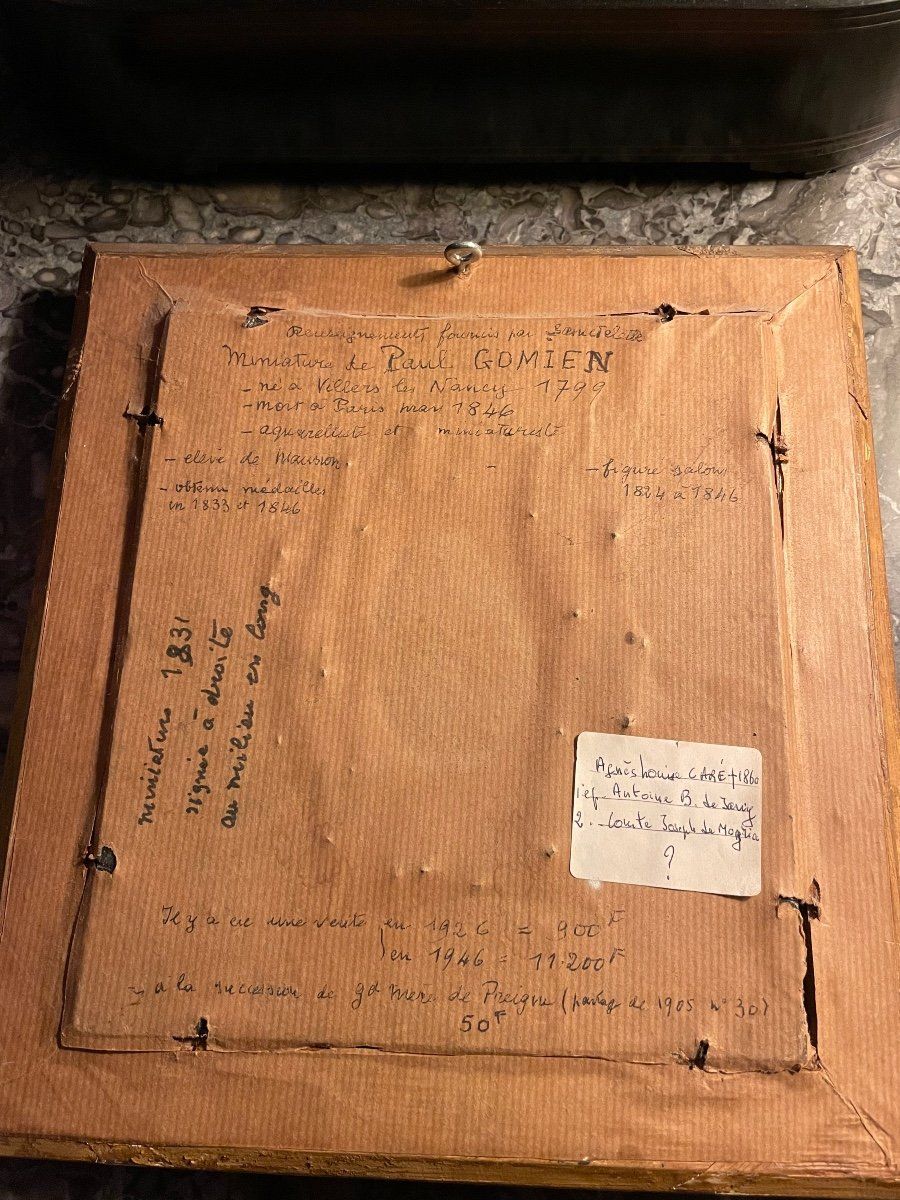 Renseignements fournis par
Miniature de Paul GOMIEN
- né à Villers les Nancy - 1799
- mort à Paris mars 1846
- aquarelliste et miniaturiste
- élève de Mansion -
- figure salons
1824 à 1846
- obtenu médailles
en 1833 et 1846
miniature 1831
signée à droite
au milieu en long
Agnès Louise CARÉ † 1860
Antoine B. de
2. - Comte Joseph de
?
Il y a eu une vente en 1926 = 900 F
en 1946 = 11.200 F
à la succession de gd Mère de Preigne (partage de 1905 n° 30)
50 F